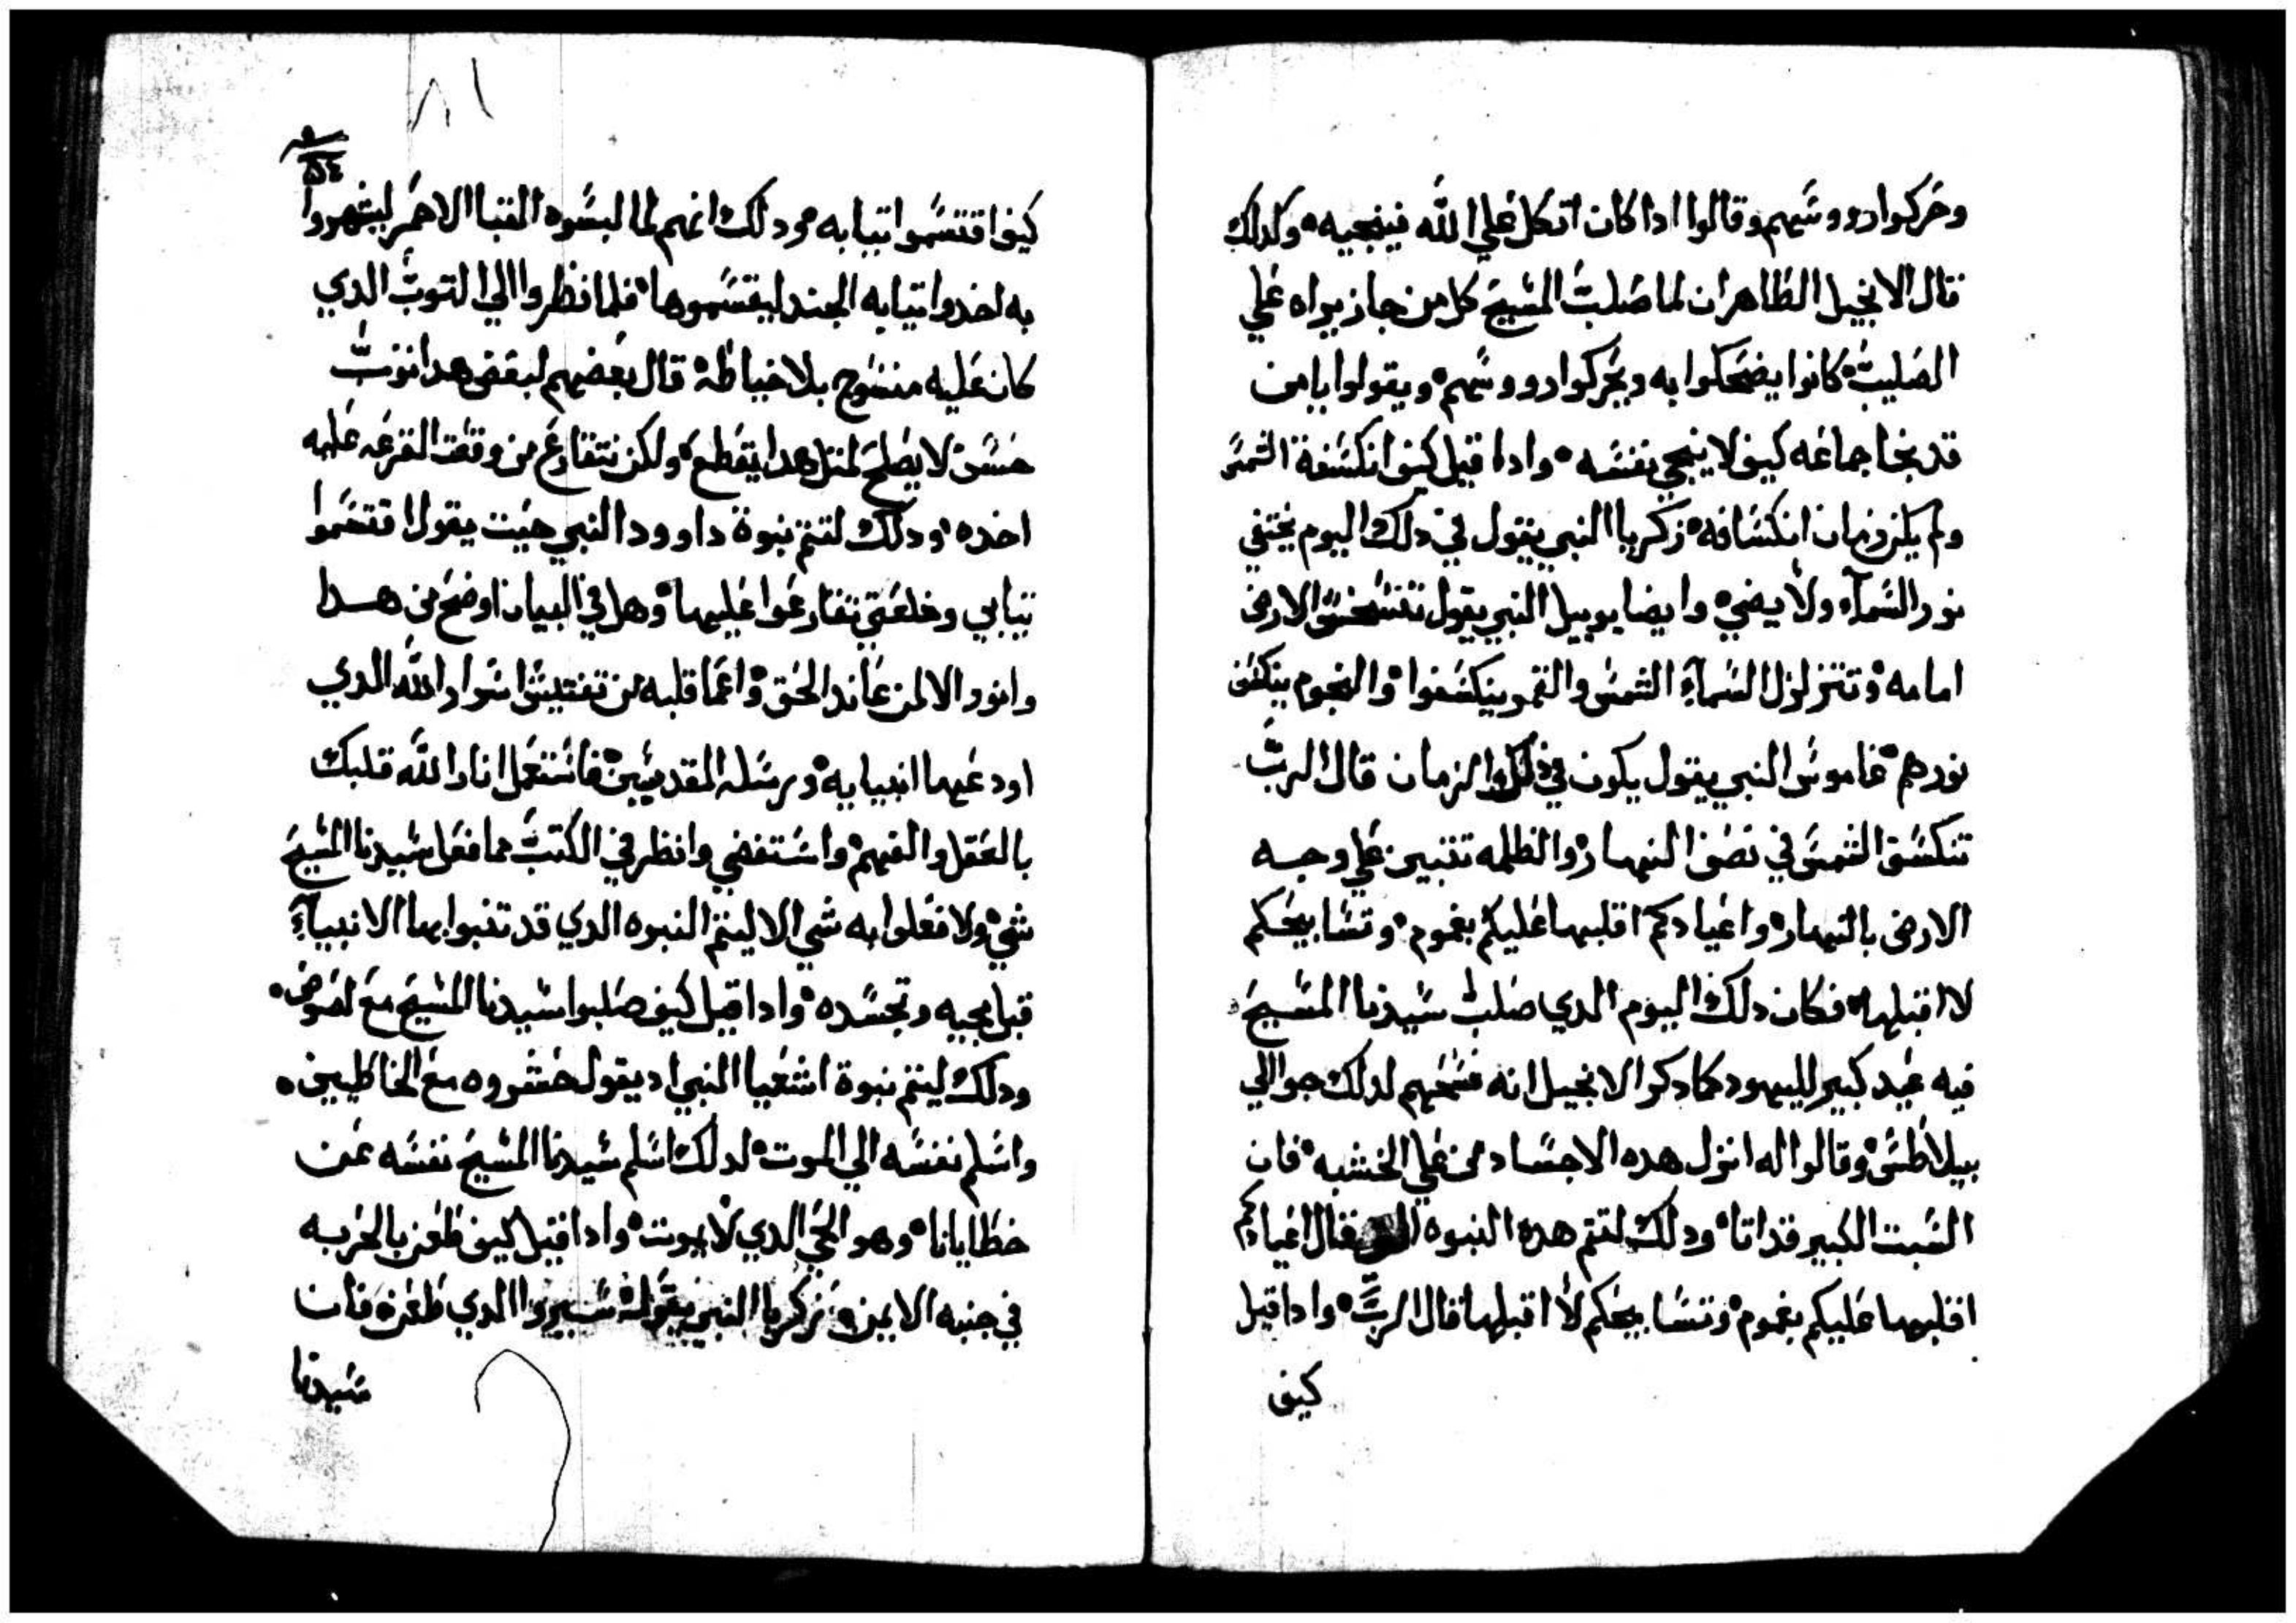 وحركوا رووسهم وقالوا ادا كان اتكل علي الله فينجيه وكدلك
قال الانجيل الطاهر ان لما صلب المسيح كل من جاز يراه علي
الصليب كانوا يضحكوا به ويحركوا رووسهم ويقولوا يا من
قد نجا جماعه كيف لا ينجي نفسه وادا قيل كيف انكسفة الشمس
ولم يكن زمان انكسافه زكريا النبي يقول في دلك اليوم يختفي
نور السمآء ولا يضي وايضا يوييل النبي يقول الارض
امامه وتتزلزل السمآء الشمس والقمر ينكسفوا والنجوم ينكسف
نورهم عاموس النبي يقول يكون في دلك الزمان قال الرب
تنكسف الشمس في نصف النهار والظلمه تتبين علي وجه
الارض بالنهار واعيادكم اقلبها عليكم بغموم وتسابيحكم
لا اقبلها فكان دلك اليوم الدي صلب سيدنا المسيح
فيه عيد كبير لليهود كما دكر الانجيل انه فسحهم لدلك جوا الي
بيلاطس وقالوا له انزل هده الاجساد من علي الخشبه فان
السبت الكبير قد اتا ودلك لتتم هده النبوه فقال اعيادكم
اقلبها عليكم بغموم وتسابيحكم لا اقبلها قال الرب وادا قيل
كيف
٥٤
كيف اقتسموا تيابه ودلك انهم لما لبسوه القبا الاحمر ليشهروا
به اخدوا تيابه الجند ليقسموها فلما نظروا الي التوب الدي
كان عليه منسوج بلا خياطه قال بعضهم لبعض هدا توب
حسن لا يصلح لمتل هدا يتقطع ولكن نتقارع من وقعت القرعه عليه
اخده ودلك لتتم نبوة داوود النبي حيت يقول اقتسموا
تيابي وخلعتي تقارعوا عليها وهل في البيان اوضح من هدا
وانور الا لمن عاند الحق واعما قلبه من تفتيش اسرار الله الدي
اودعها انبيايه ورسله المقديسين فاشتعل انار الله قلبك
بالعقل والفهم واستفضي وانظر في الكتب مما فعل سيدنا المسيح
شي ولا فعلوا به شي الا ليتم النبوه الدي قد تنبوا بها الانبيآء
قبل مجيه وتجسده وادا قيل كيف صلبوا سيدنا المسيح مع لصوص
ودلك ليتم نبوة اشعيا النبي اد يقول حسروه مع الخاطيين
واسلم نفسه الي الموت لدلك اسلم سيدنا المسيح نفسه عن
خطايانا وهو الحي الدي لا يموت وادا قيل كيف طعن بالحربه
في جنبه الايمن زكريا النبي يقول الدي طعنوه فان
سيدنا